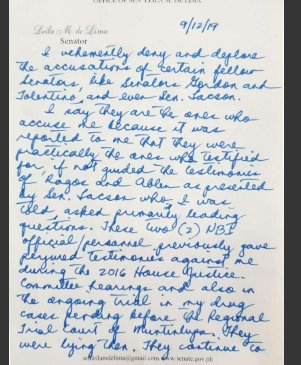 OFFICE OF SEN. LEILA M. DE LIMA
Leila M. de Lima
Senator
9/12/19
I vehemently deny and deplore
the accusations of certain fellow
Senators, like Senators Gordon and
Tolentino, and even Sen. Lacson.
I say they are the ones who
accuse me because it was
reported to me that they were
practically the ones who testified
for if not guided the testimonies
of Ragos and Ablen as presented
by Sen. Lacson who, I was
told, asked primarily leading
questions. These two (2) NBI
official/personnel previously gave
perjured testimonies against me
during the 2016 House Justice
Committee hearings and also in
the ongoing trial in my drug
cases pending before the Regional
Trial Court of Muntinlupa. They
were lying then. They continue to
senleilamdelima@gmail.com www.senate.gov.ph